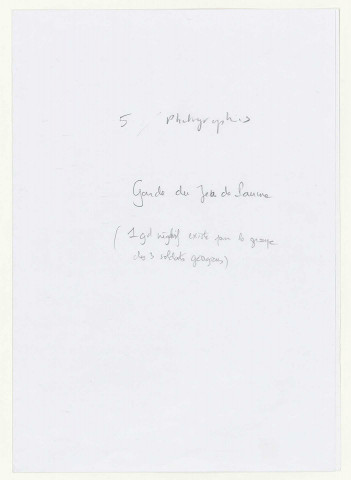 5 Photographies
Garde du Jeu de Paume
(1 gd négatif existe pour le groupe
des 3 soldats géorgiens)